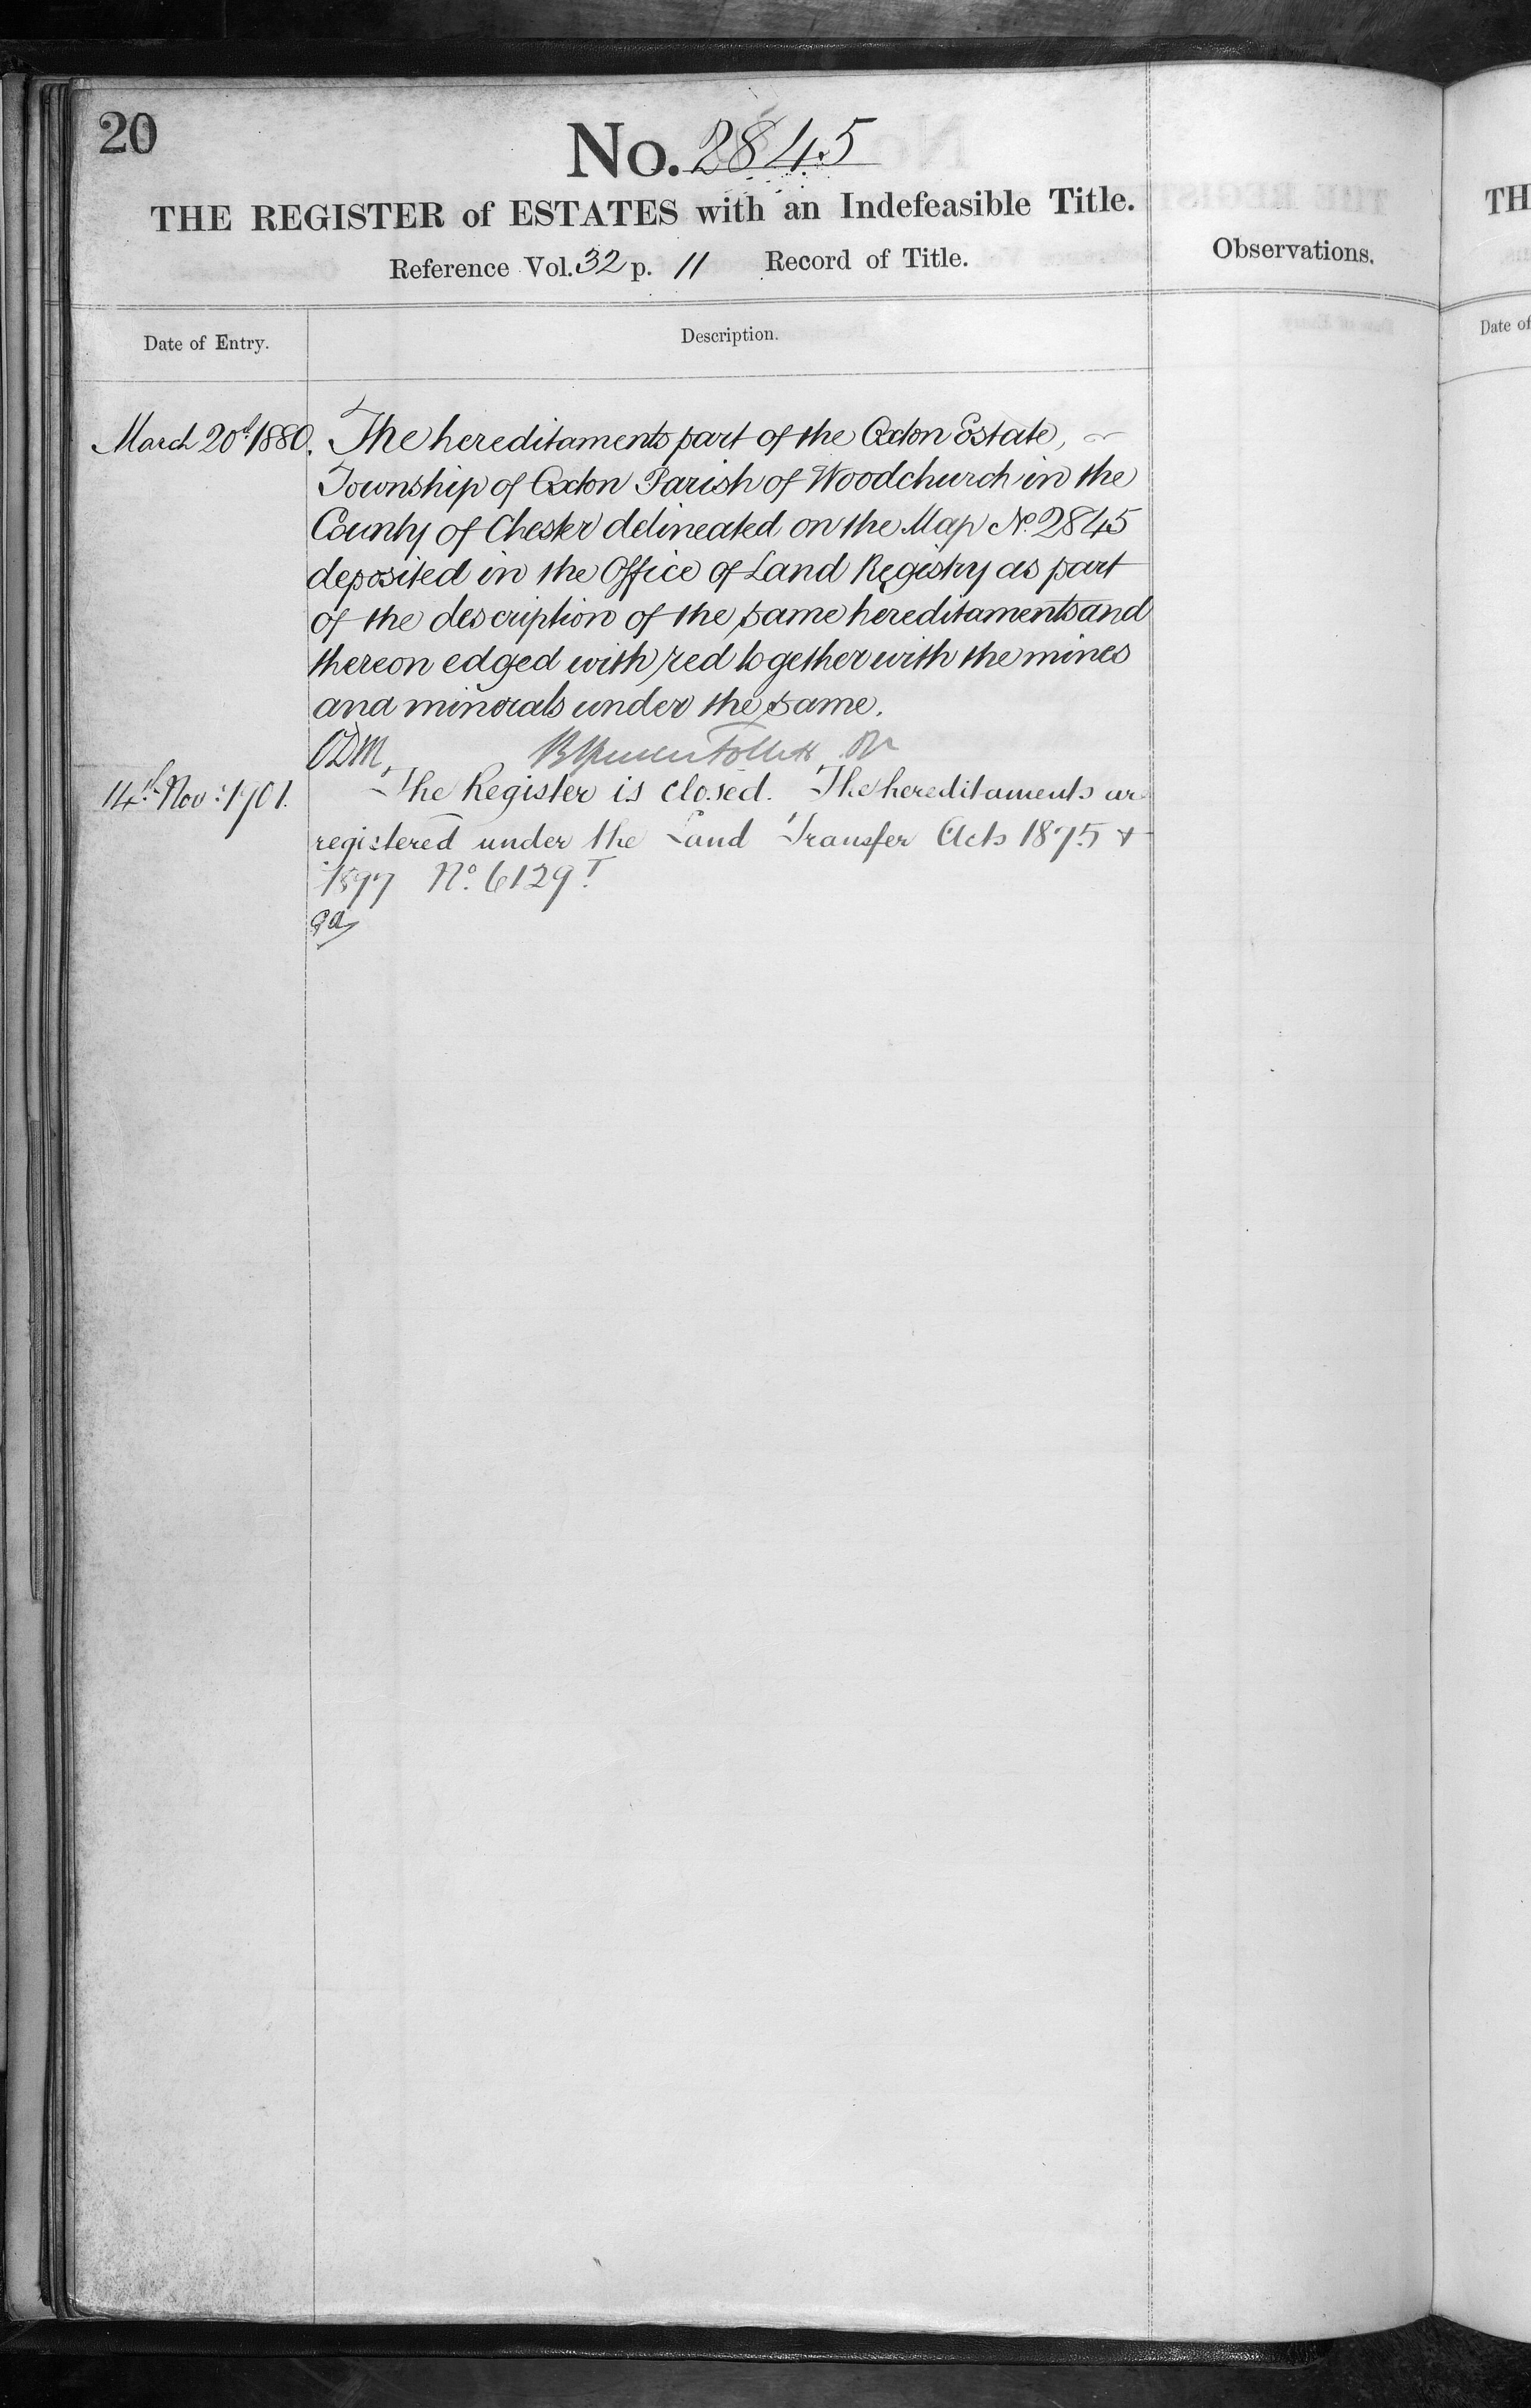 20
No. 2845
THE REGISTER of ESTATES with an Indefeasible Title.
Reference Vol. 32 p. 11 Record of Title.
Observations.
Date of Entry.
Description.
March 20th 1880. The hereditaments part of the Oxton Estate,
Township of Oxton Parish of Woodchurch in the
County of Chester delineated on the Map No. 2845
deposited in the Office of Land Registry as part
of the description of the same hereditaments and
thereon edged with red together with the mines
and minerals under the same.
ODM, Follett
14th Nov: 1901. The Register is closed. The hereditaments are
registered under the Land Transfer Acts 1875 &
1897 No. 6129
TH
Date of